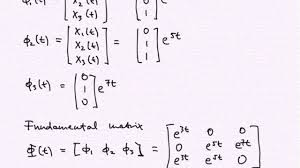 ϕ₁(t) = [x₂(t) x₃(t)] = [0 0]
ϕ₂(t) = [x₁(t) x₂(t) x₃(t)] = [0 1 1] e^{5t}
ϕ₃(t) = [0 1 0] e^{7t}
Fundamental matrix
Φ(t) = [ϕ₁ ϕ₂ ϕ₃] = [e^{3t} 0 0
0 e^{5t} e^{7t}
0 e^{5t} 0]